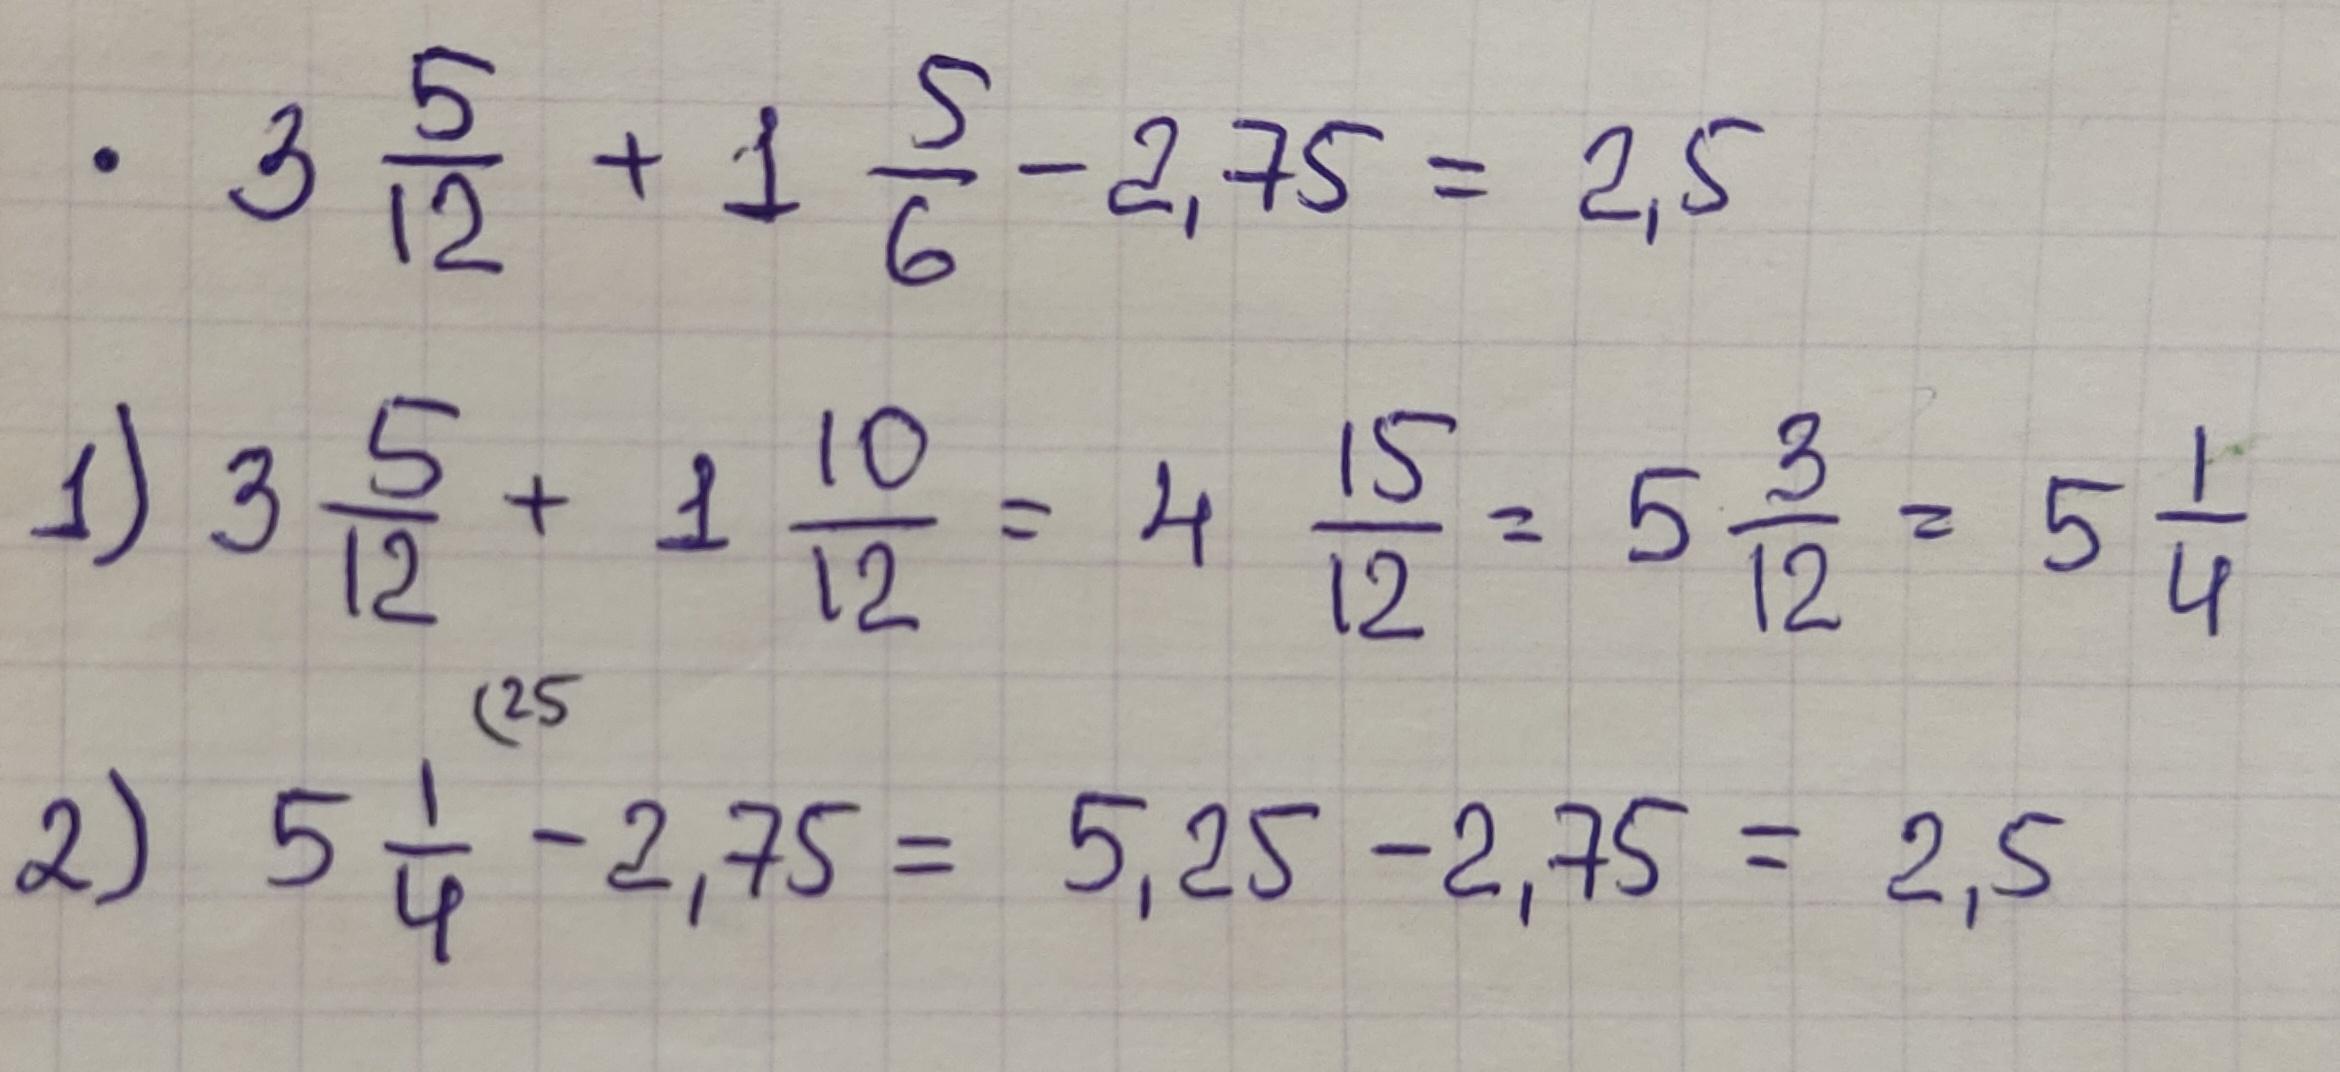 · 3 5/12 + 1 5/6 - 2,75 = 2,5
1) 3 5/12 + 1 10/12 = 4 15/12 = 5 3/12 = 5 1/4
(25
2) 5 1/4 - 2,75 = 5,25 - 2,75 = 2,5